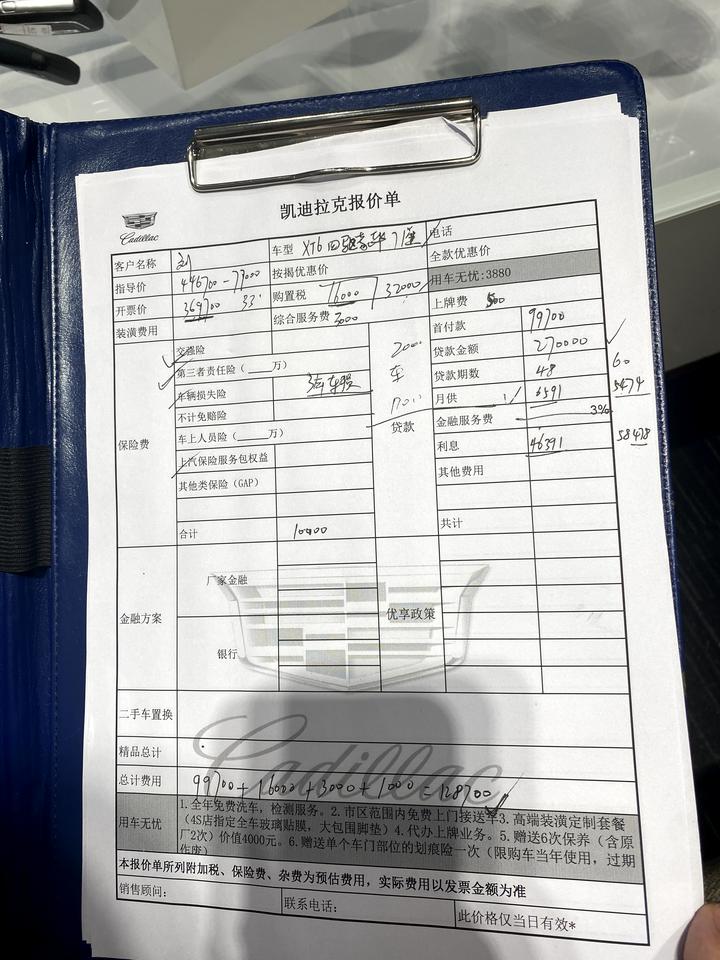 凯迪拉克报价单
Cadillac
客户名称 刘 车型 XT6 四驱豪华7座 电话
指导价 446700-77000 按揭优惠价 全款优惠价
开票价 369700 购置税 16000 / 32000 用车无忧:3880
装潢费用 综合服务费 3000 上牌费 500
保险费
交强险
第三者责任险（____万）
车辆损失险
不计免赔险
车上人员险（____万）
上汽保险服务包权益
其他类保险（GAP）
合计 10000
贷款
首付款 99700
贷款金额 270000
贷款期数 48 60
月供 6591 5474
金融服务费 3%
利息 46391 58478
其他费用
共计
金融方案
厂家金融
银行
优享政策
二手车置换
精品总计
总计费用 99700+16000+3000+1000=128700
用车无忧
1.全年免费洗车，检测服务。2.市区范围内免费上门接送车3.高端装潢定制套餐
（4S店指定全车玻璃贴膜，大包围脚垫）4.代办上牌业务。5.赠送6次保养（含原
厂2次）价值4000元。6.赠送单个车门部位的划痕险一次（限购车当年使用，过期
作废）
本报价单所列附加税、保险费、杂费为预估费用，实际费用以发票金额为准
销售顾问： 联系电话： 此价格仅当日有效*